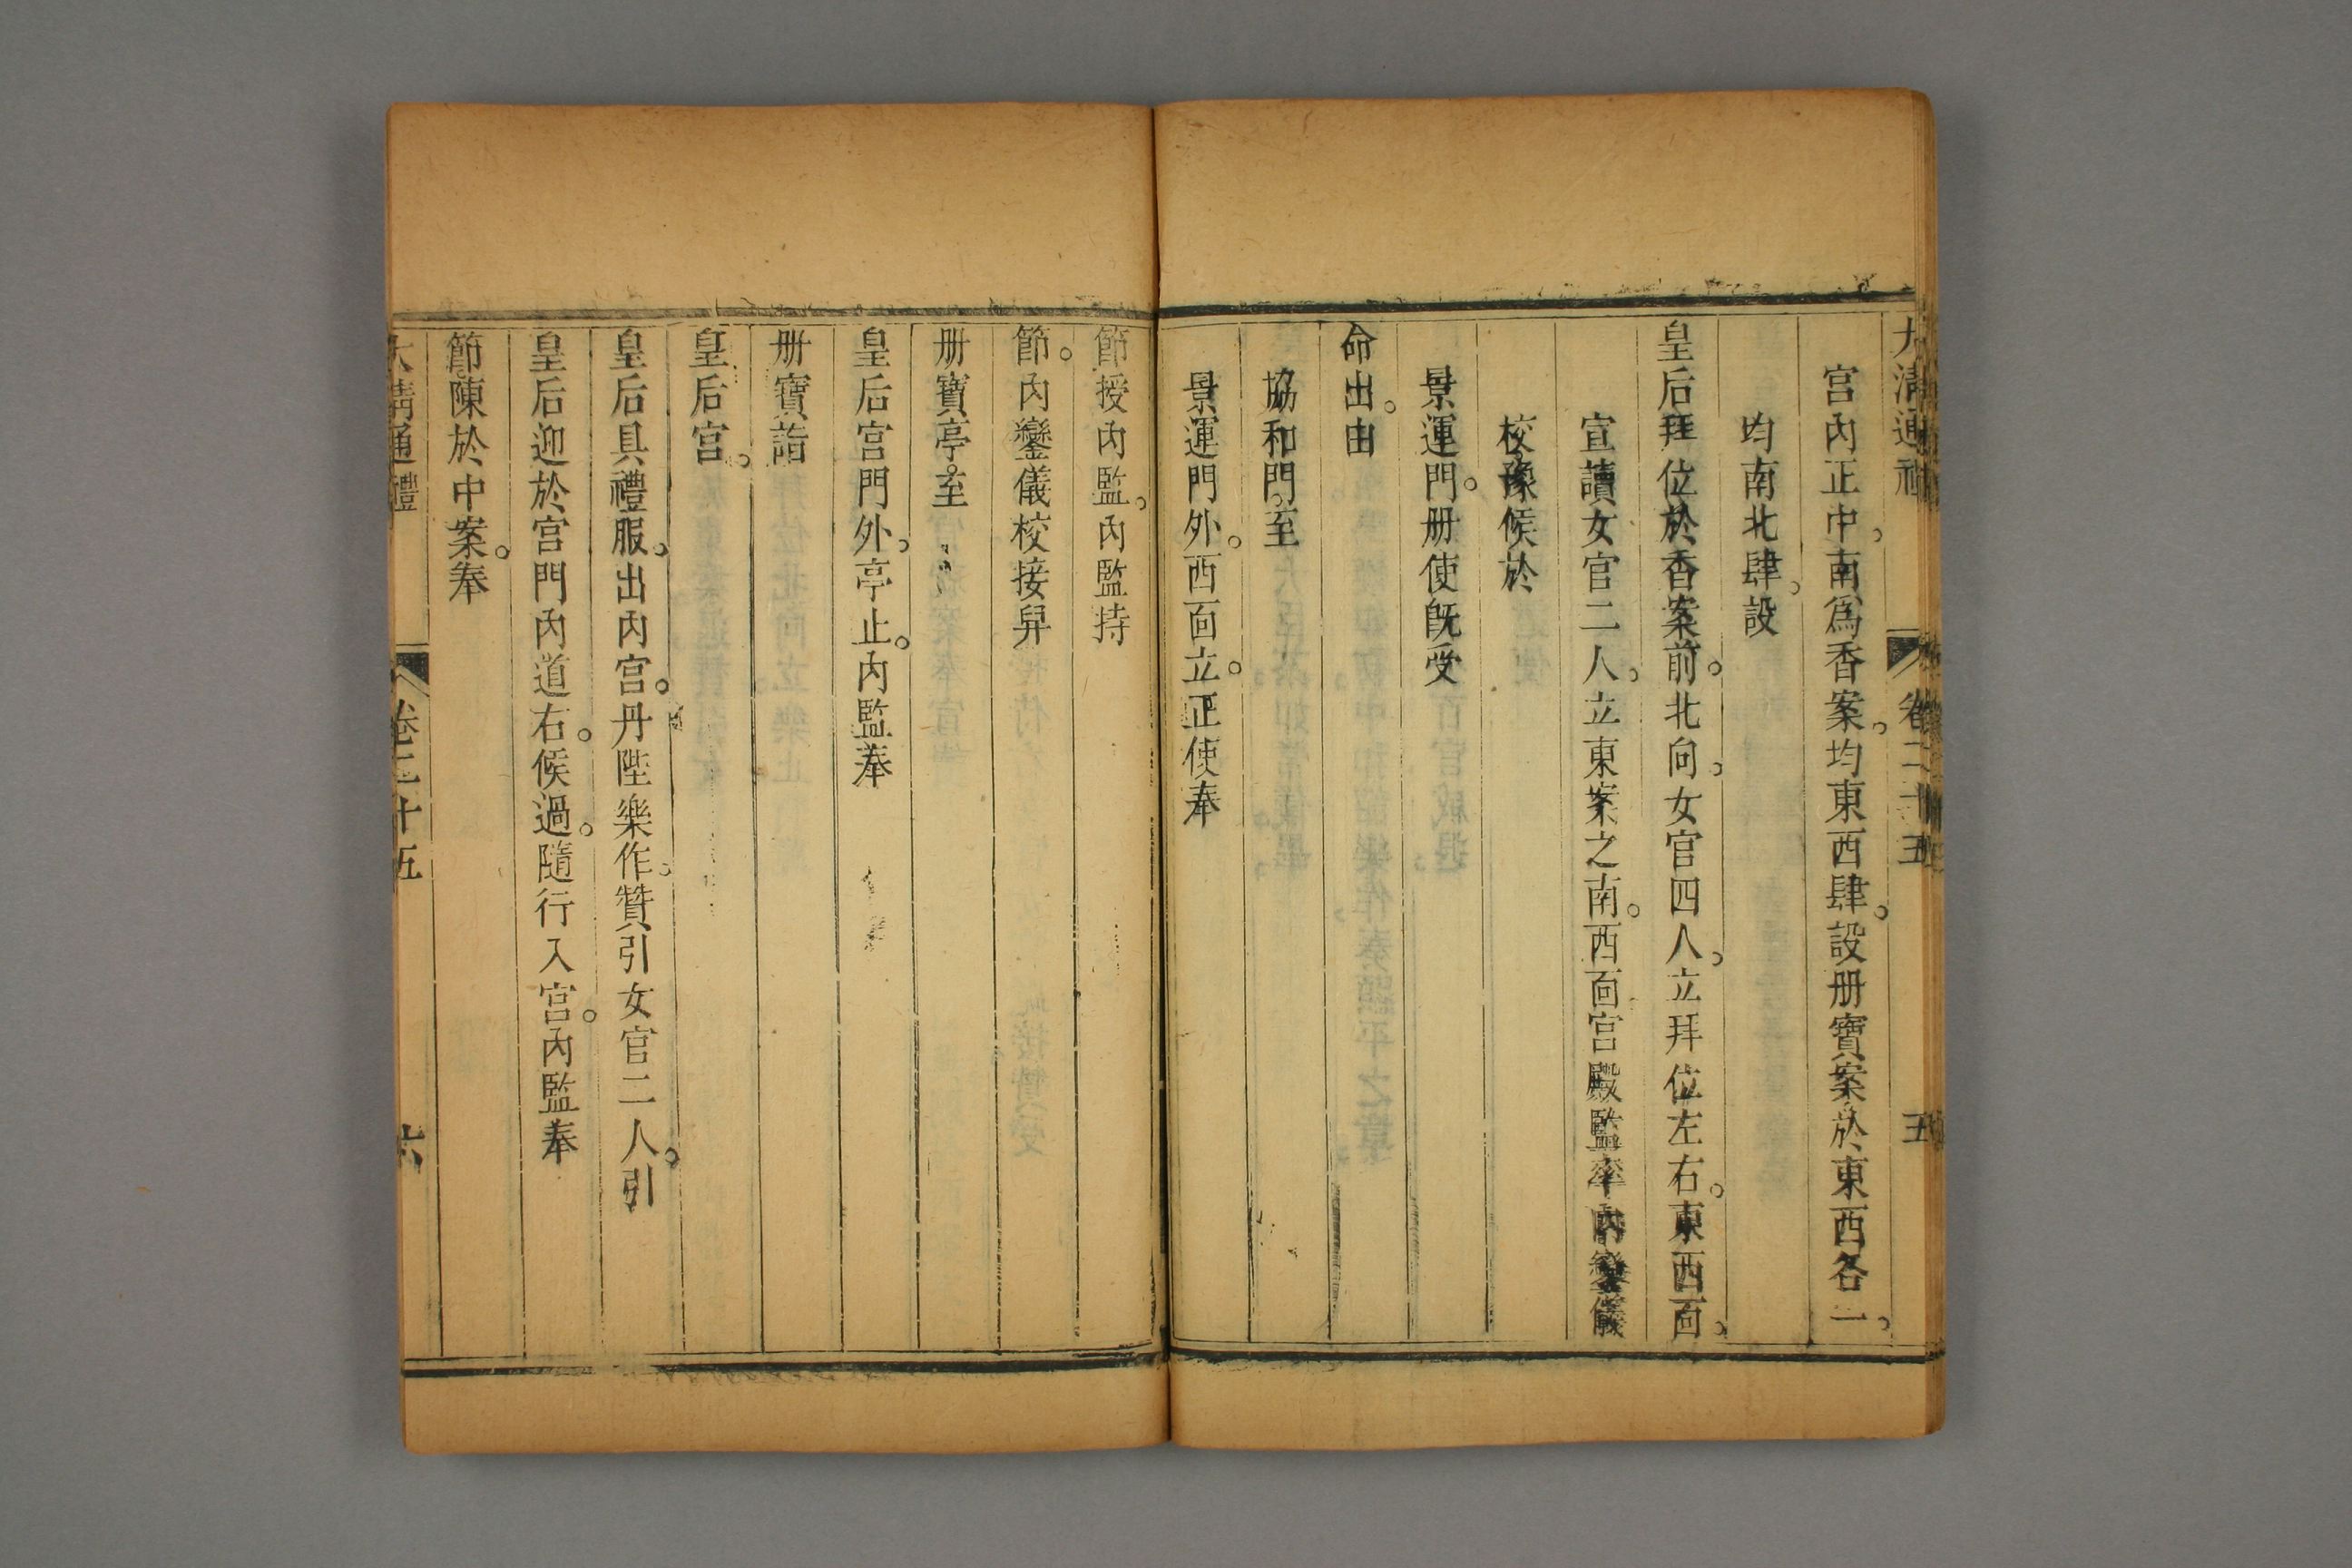 大清通禮 卷二十五 五
宫内正中。南爲香案。均東西肆。設册寶案於東西各一。
均南北肆。設
皇后拜位於香案前。北向。女官四人。立拜位左右。東西面。
宣讀女官二人。立東案之南。西面。宫殿監率內鑾儀
校豫候於
景運門。册使旣受
命出。由
協和門。至
景運門外。西面立。正使奉
節授內監。內監持
節。內鑾儀校接舁
册寶亭。至
皇后宫門外。亭止。內監奉
册寶詣
皇后宫。
皇后具禮服。出內宫。丹陛樂作。贊引女官二人。引
皇后迎於宫門內道右。候過。隨行入宫。內監奉
節陳於中案。奉
大清通禮 卷二十五 六